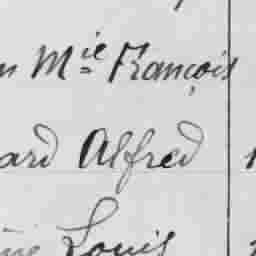 n Mie François
ard Alfred
Louis